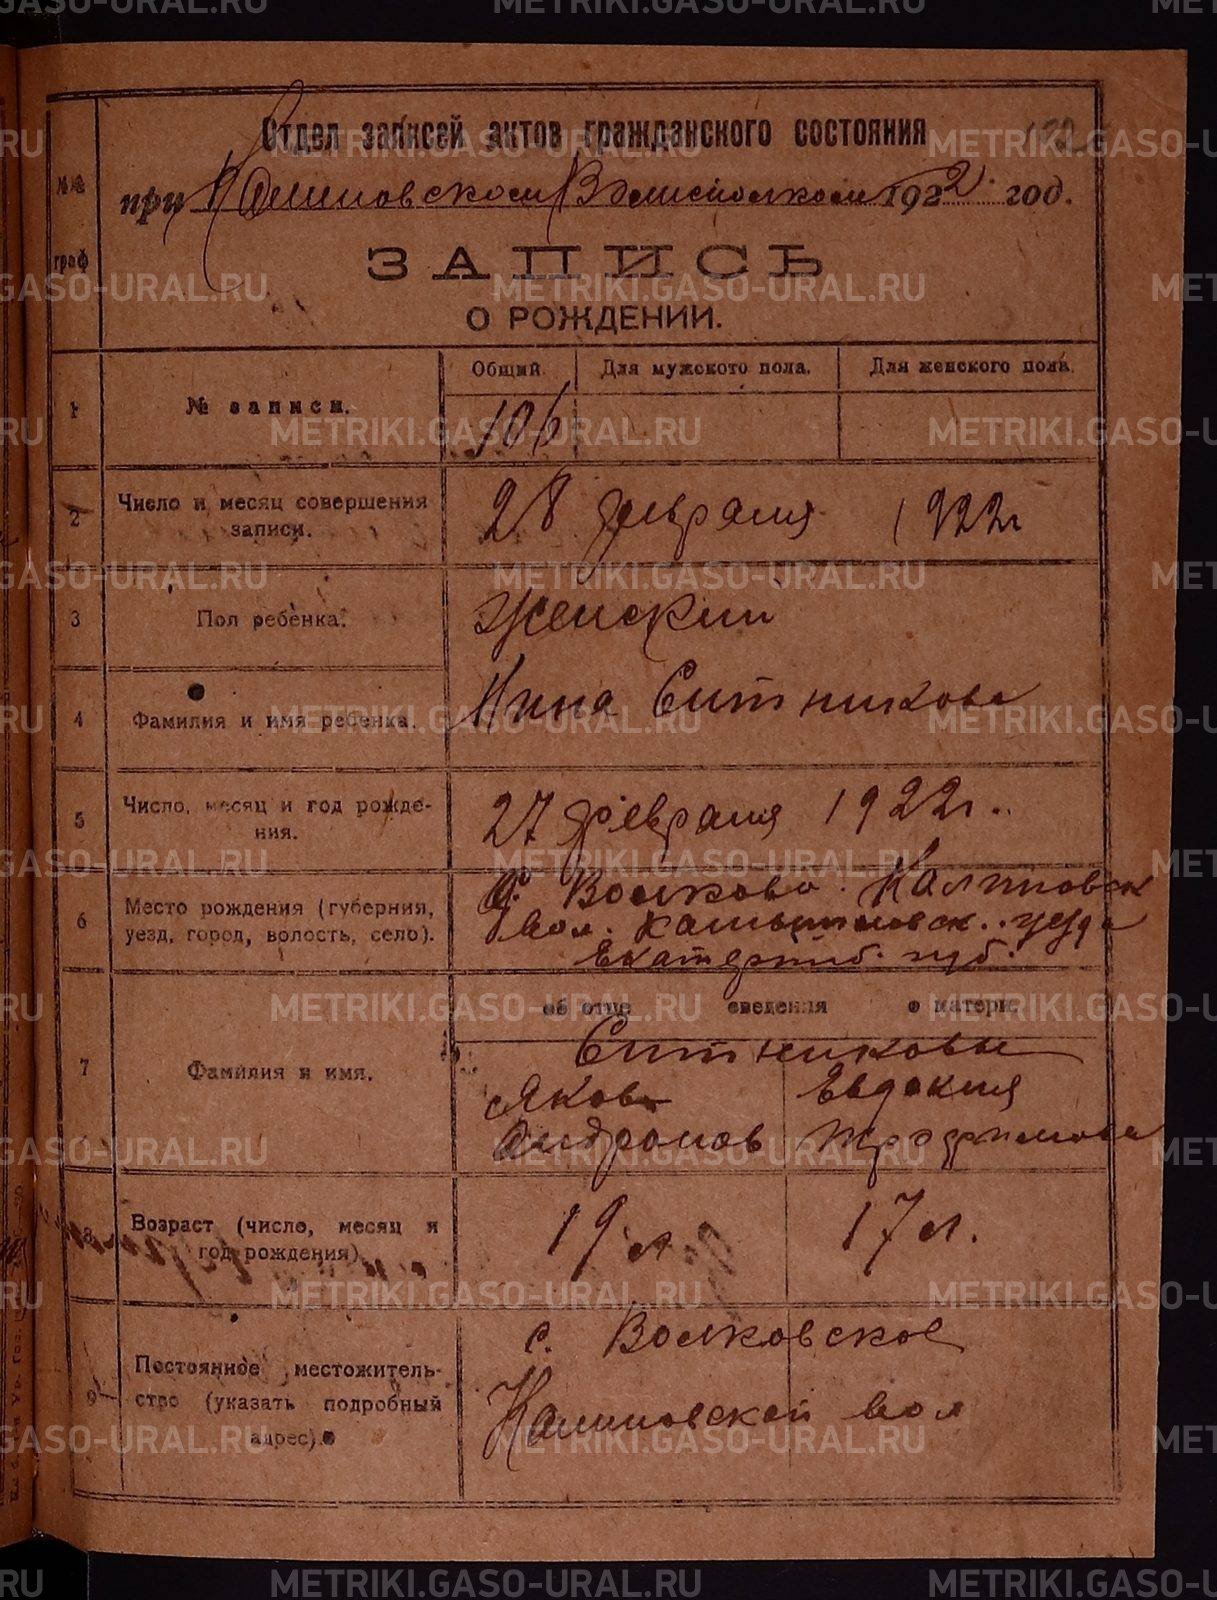 Отдел записей актов гражданского состояния
при Калиновском Волисполкоме 1922 год.
№№ граф
ЗАПИСЬ
О РОЖДЕНИИ.
Общий. Для мужского пола. Для женского пола.
1 № записи. 106
2 Число и месяц совершения записи. 28 февраля 1922г
3 Пол ребенка. Женский
4 Фамилия и имя ребенка. Нина Ситникова
5 Число, месяц и год рождения. 27 февраля 1922г.
6 Место рождения (губерния, уезд, город, волость, село). С. Волково. Калиновск
вол. Камышловск. уезда
Екатеринб. губ.
об отце сведения о матери.
7 Фамилия и имя. Ситниковы
Яков Евдокия
Андронов Трофимова
8 Возраст (число, месяц и год рождения) 19 л. 17 л.
9 Постоянное местожительство (указать подробный адрес). с. Волковское
Калиновской вол
METRIKI.GASO-URAL.RU